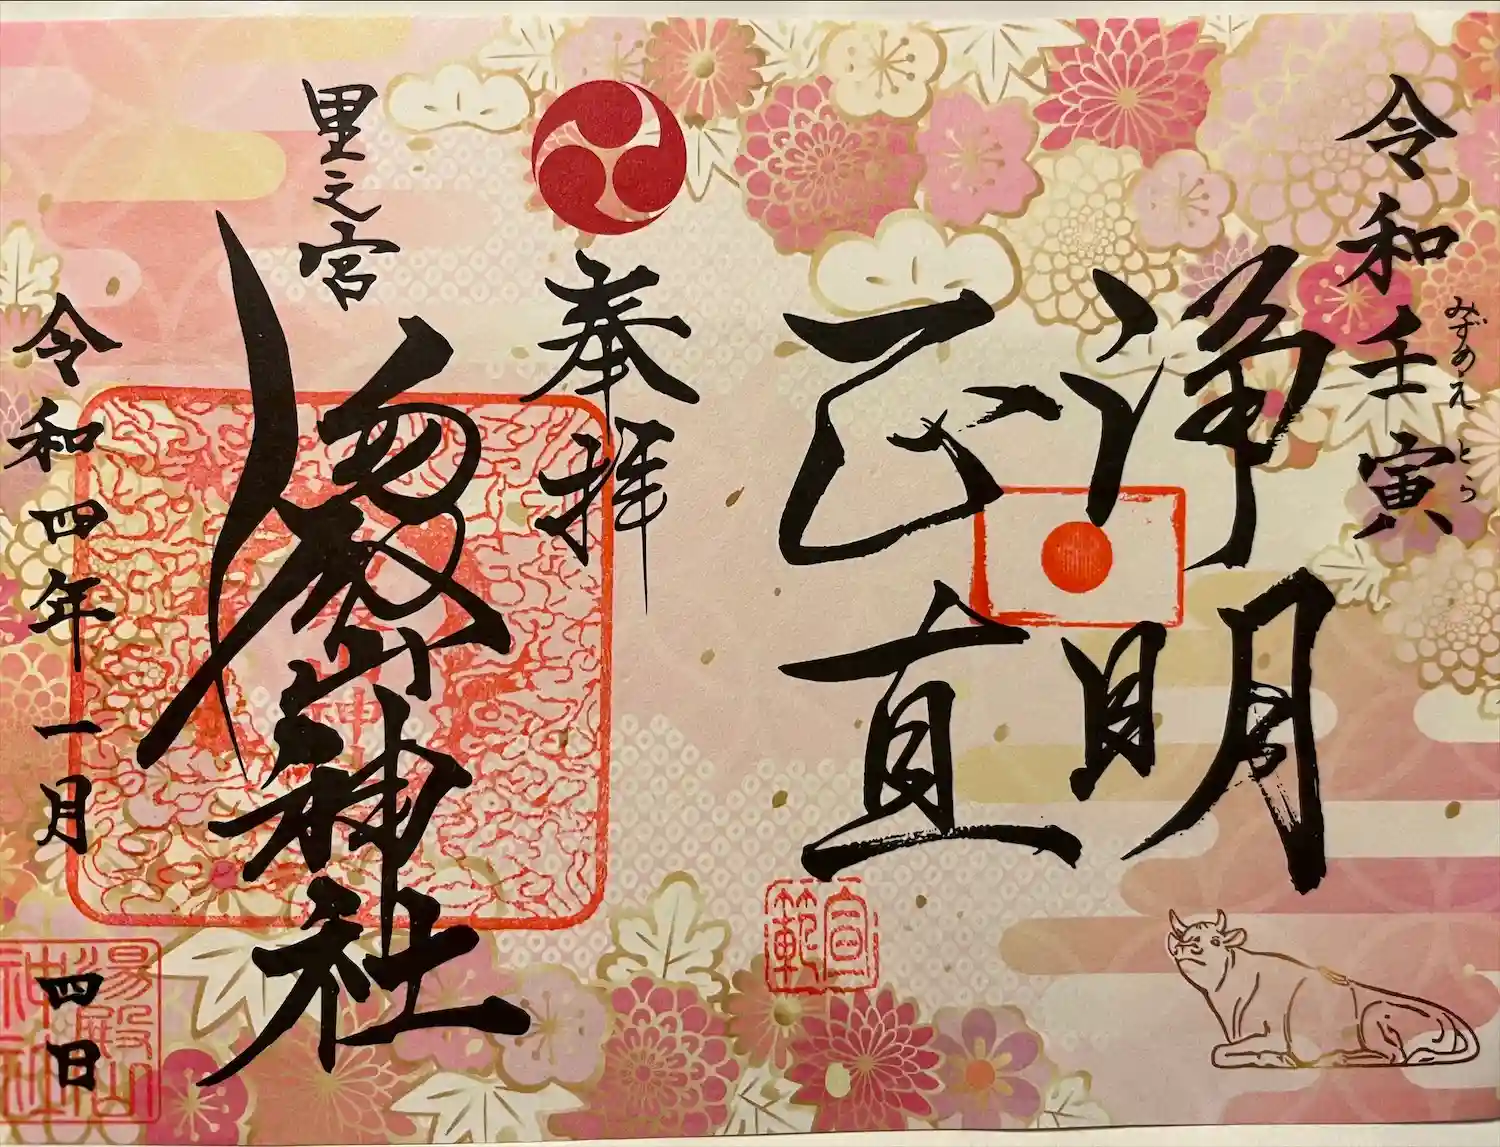 令和壬寅
みずのえ とら
浄明
正直
宣範
奉拝
里之宮
湯殿山神社
令和四年一月四日
湯殿山
神社